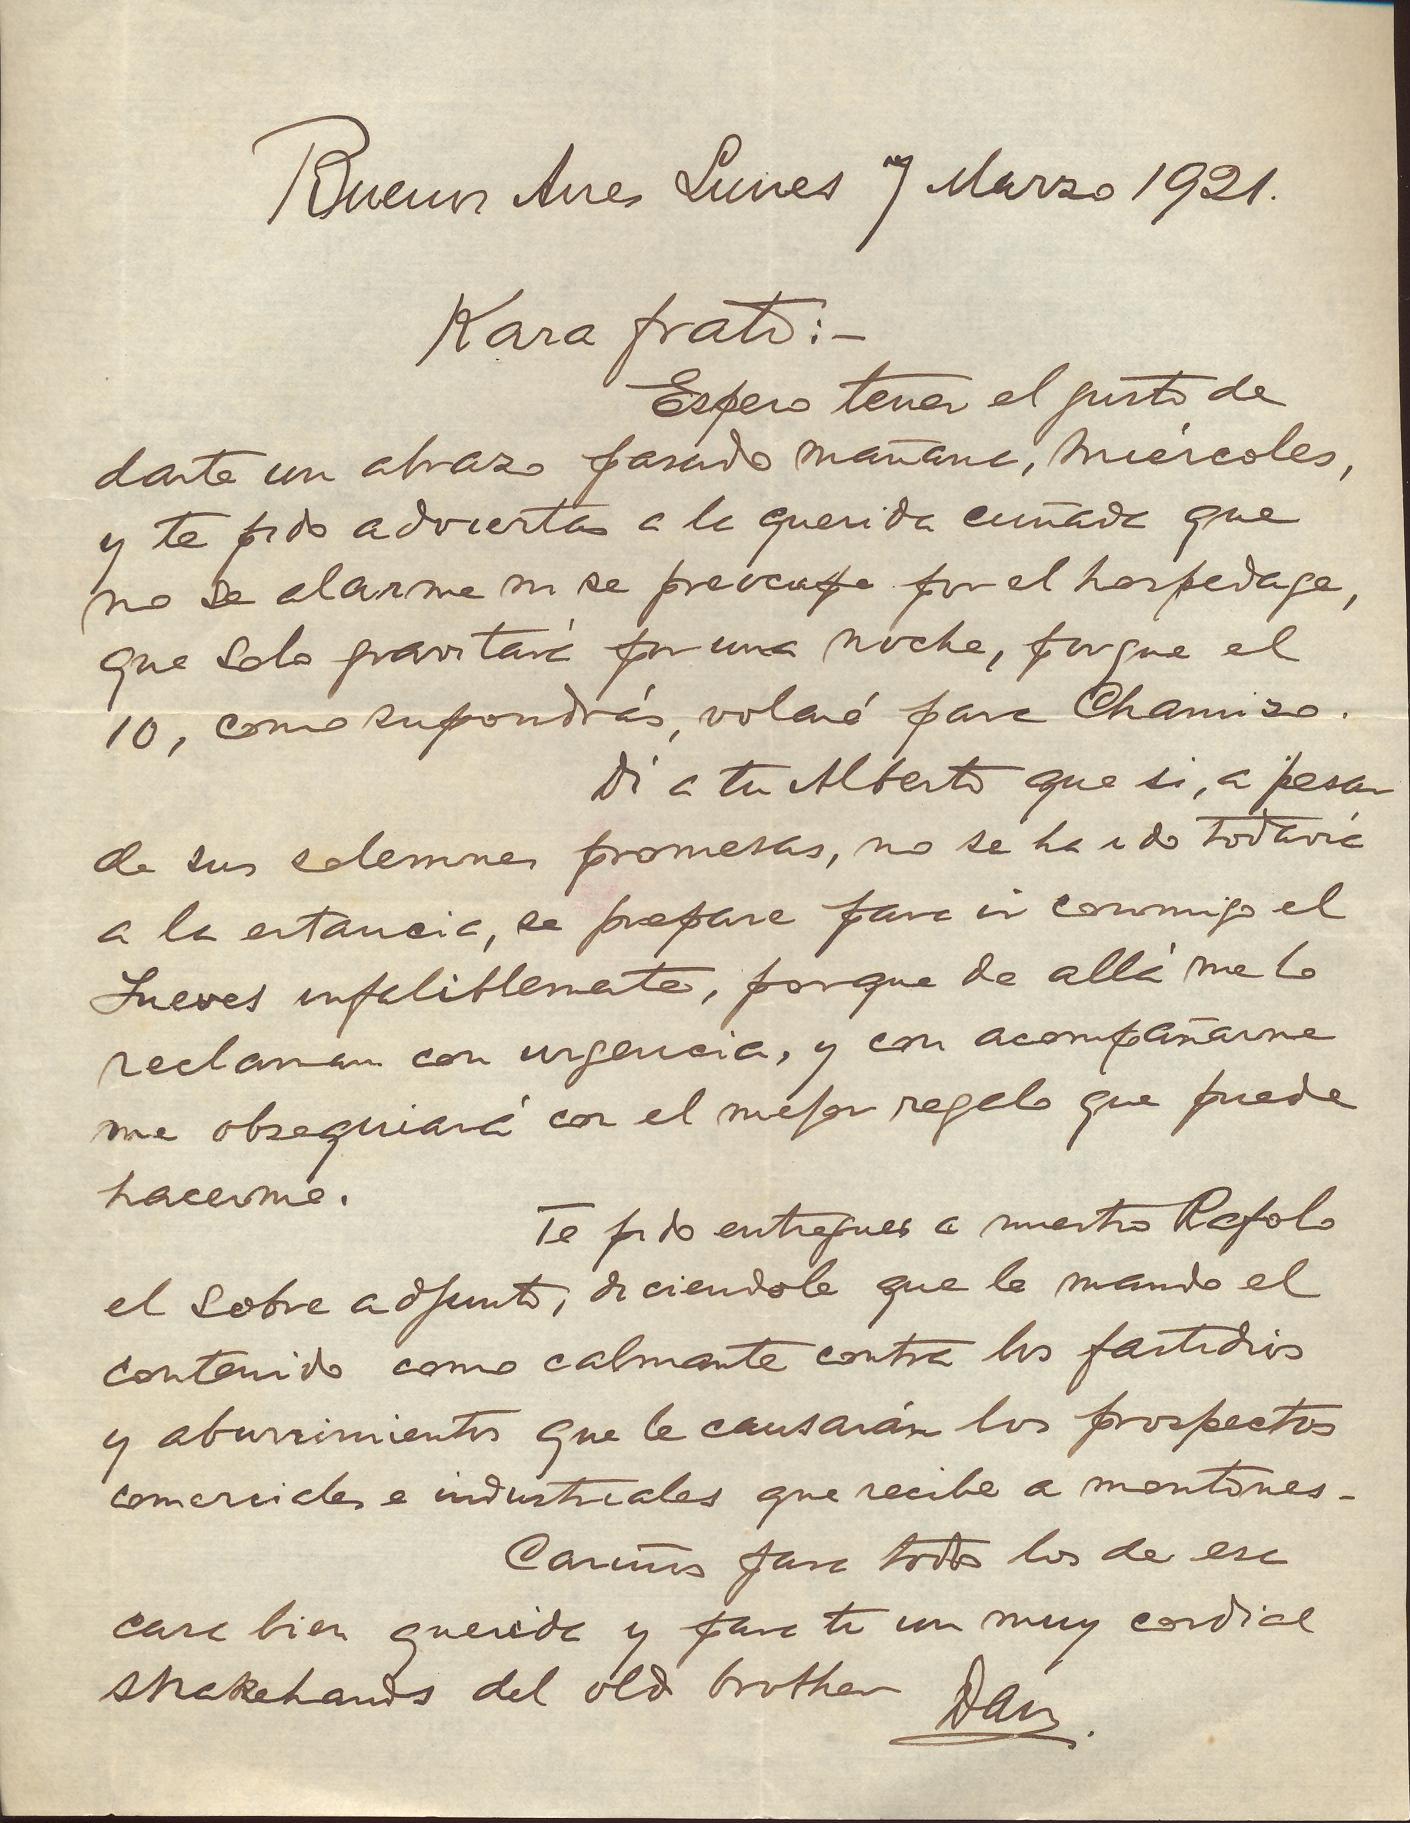 Buenos Aires Lunes 7 Marzo 1921.
Kara frato:-
Espero tener el gusto de
darte un abrazo pasado mañana, miércoles,
y te pido adviertas a la querida cuñada que
no se alarme ni se preocupe por el hospedage,
que solo gravitará por una noche, porque el
10, como supondrás, volaré para Chamizo.
Di a tu Alberto que si, a pesar
de sus solemnes promesas, no se ha ido todavía
a la estancia, se prepare para ir conmigo el
Jueves infaliblemente, porque de allá me lo
reclaman con urgencia, y con acompañarme
me obsequiará con el mejor regalo que puede
hacerme.
Te pido entregues a nuestro Rafolo
el sobre adjunto, diciendole que le mando el
contenido como calmante contra los fastidios
y aburrimientos que le causarán los prospectos
comerciales e industriales que recibe a montones-
Cariños para todos los de esa
casa bien querida y para ti un muy cordial
shakehands del old brother Dan.